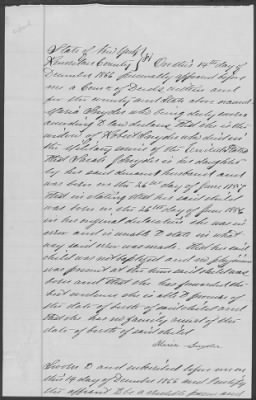 State of New York
Rensselaer County } SS On this 14th day of
December 1866 personally appeared before
me a Comr of Deeds within and
for the county and State above named
Maria Snyder who being duly sworn
according to law declares that she is the
widow of Robert Snyder who died in
the Military service of the United States
that Sarah J Snyder is his daughter
by her said deceased husband and
was born on the 26th day of June 1857
that in stating that her said child
was born on the 26th day of June 1856
in her original declaration she was in
error and is unable to state in what
way said error was made. that her said
child was not baptized and no physician
was present at the time said child was
born and that she has forwarded the
best evidence she is able to procure of
the date of birth of said child and
that she has no family record of the
date of birth of said child
Maria Snyder
Sworn to and subscribed before me on
this 14 day of December 1866 and I certify
the affiant to be a credible person and